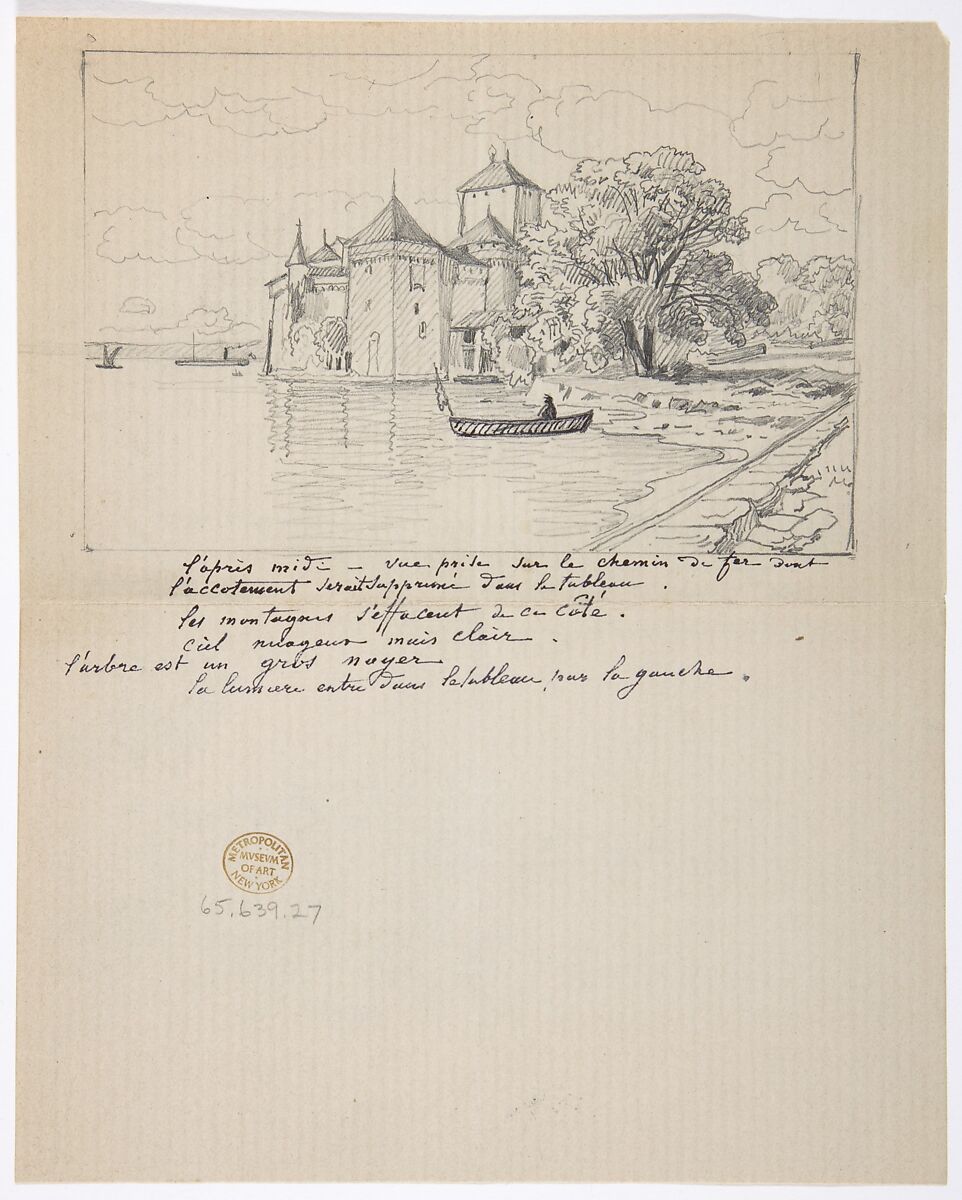 l'après midi — vue prise sur le chemin de fer dont
l'accotement serait supprimé dans le tableau.
les montagnes s'effacent de ce côté.
ciel nuageux mais clair.
l'arbre est un gros noyer
la lumiere entre dans le tableau par la gauche.
METROPOLITAN
MVSEVM
OF ART
NEW YORK
65.639.27